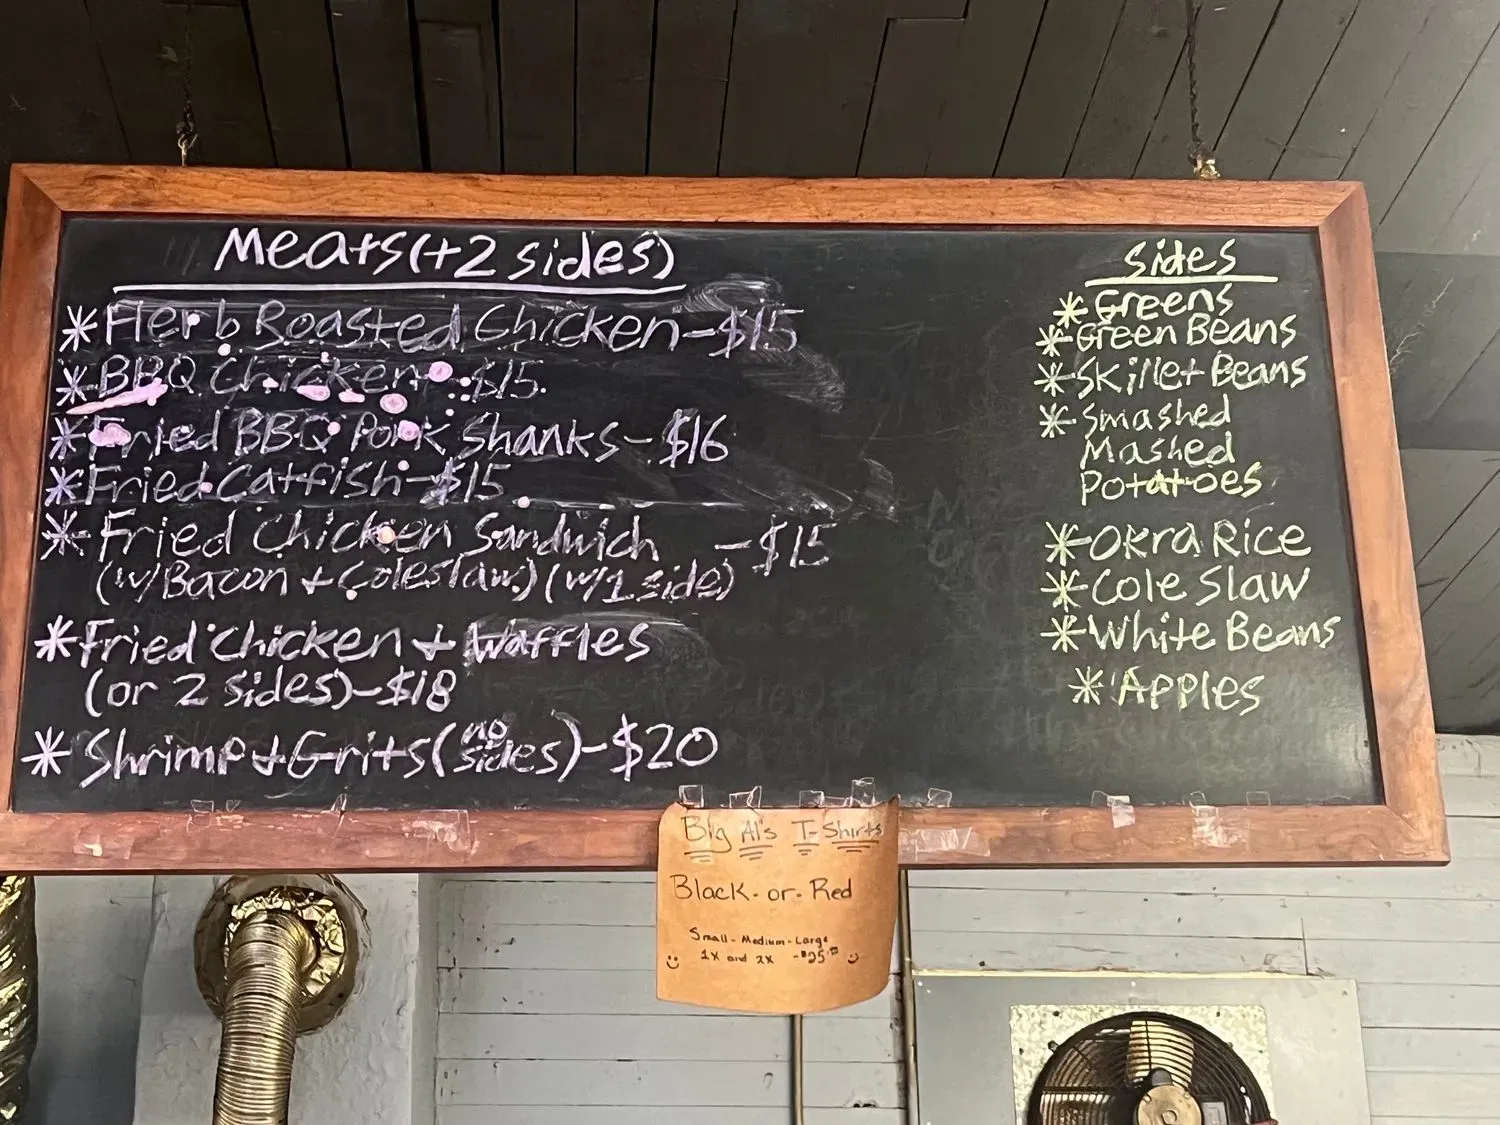 Meats(+2 sides)
*Herb Roasted Chicken-$15
*BBQ Chicken-$15
*Fried BBQ Pork Shanks-$16
*Fried Catfish-$15
*Fried Chicken Sandwich -$15
(w/Bacon + Coleslaw)(w/1 side)
*Fried Chicken + Waffles
(or 2 sides)-$18
*Shrimp+Grits(no sides)-$20
Sides
*Greens
*Green Beans
*Skillet Beans
*Smashed
Mashed
Potatoes
*Okra Rice
*Cole Slaw
*White Beans
*Apples
Big Al's T-Shirts
Black-or-Red
Small-Medium-Large
1X and 2X -$25